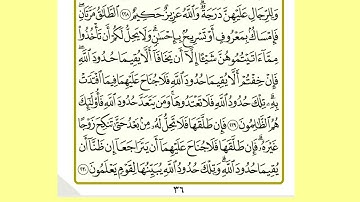 وَلِلرِّجَالِ عَلَيْهِنَّ دَرَجَةٌ ۗ وَاللَّهُ عَزِيزٌ حَكِيمٌ ٢٢٨ الطَّلَاقُ مَرَّتَانِ ۖ
فَإِمْسَاكٌ بِمَعْرُوفٍ أَوْ تَسْرِيحٌ بِإِحْسَانٍ ۗ وَلَا يَحِلُّ لَكُمْ أَنْ تَأْخُذُوا
مِمَّا آتَيْتُمُوهُنَّ شَيْئًا إِلَّا أَنْ يَخَافَا أَلَّا يُقِيمَا حُدُودَ اللَّهِ ۖ
فَإِنْ خِفْتُمْ أَلَّا يُقِيمَا حُدُودَ اللَّهِ فَلَا جُنَاحَ عَلَيْهِمَا فِيمَا افْتَدَتْ
بِهِ ۗ تِلْكَ حُدُودُ اللَّهِ فَلَا تَعْتَدُوهَا ۚ وَمَنْ يَتَعَدَّ حُدُودَ اللَّهِ فَأُولَٰئِكَ
هُمُ الظَّالِمُونَ ٢٢٩ فَإِنْ طَلَّقَهَا فَلَا تَحِلُّ لَهُ مِنْ بَعْدُ حَتَّىٰ تَنْكِحَ زَوْجًا
غَيْرَهُ ۗ فَإِنْ طَلَّقَهَا فَلَا جُنَاحَ عَلَيْهِمَا أَنْ يَتَرَاجَعَا إِنْ ظَنَّا أَنْ
يُقِيمَا حُدُودَ اللَّهِ ۗ وَتِلْكَ حُدُودُ اللَّهِ يُبَيِّنُهَا لِقَوْمٍ يَعْلَمُونَ ٢٣٠
٣٦